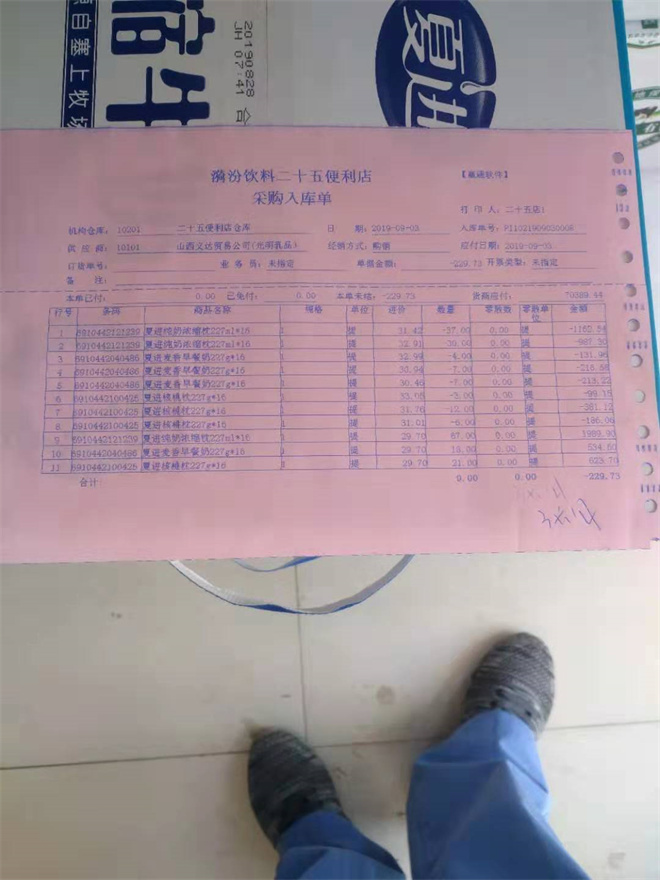 20190828
JH 07:41 合
自塞上牧场
夏进
漪汾饮料二十五便利店
采购入库单
打 印 人: 二十五店1
机构仓库: 10201 二十五便利店仓库 日 期: 2019-09-03
供 应 商: 10101 山西义达贸易公司(光明乳品) 经销方式: 购销 应付日期: 2019-09-03
订货单号: 业 务 员: 未指定 单据金额: -229.73 开票类型: 未指定
备 注:
本单已付: 0.00 已免付: 0.00 本单未结: -229.73 70389.44
行号 条码 商品名称 规格 单位 进价 数量 零散数 零散单位 金额
1 夏进纯奶浓缩枕227ml*16 1 提 31.42 -37.00 0.00 提
2 夏进纯奶浓缩枕227ml*16 1 提 32.91 0.00 提
3 6910442040486 夏进麦香早餐奶227g*16 1 提 32.99 -4.00 0.00 提 -131.96
4 6910442040486 夏进麦香早餐奶227g*16 1 提 30.94 -7.00 0.00 提 -216.58
5 6910442040486 夏进麦香早餐奶227g*16 1 提 30.46 -7.00 0.00 提 -213.22
6 6910442100425 夏进核桃枕227g*16 1 提 -3.00 0.00 提 -99.15
7 6910442100425 夏进核桃枕227g*16 1 提 31.76 -12.00 0.00 提 -381.12
8 6910442100425 夏进核桃枕227g*16 1 提 31.01 -6.00 0.00 提 -186.06
9 6910442121239 夏进纯奶浓缩枕227ml*16 1 提 29.70 67.00 0.00 提 1989.90
10 6910442040486 夏进麦香早餐奶227g*16 1 提 29.70 18.00 0.00 提 534.60
11 6910442100425 夏进核桃枕227g*16 1 提 29.70 21.00 0.00 提 623.70
合计: 0.00 0.00 -229.73